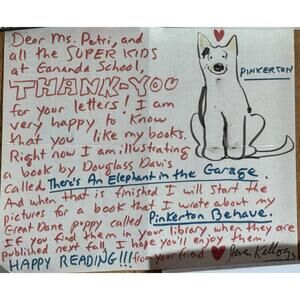 Dear Ms. Petri, and
all the SUPER KIDS
at Gananda School,
THANK-YOU
for your letters! I am
very happy to know
that you like my books.
Right now I am illustrating
a book by Douglass Davis
called There's An Elephant in the Garage.
And when that is finished I will start the
pictures for a book that I wrote about my
Great Dane puppy called Pinkerton Behave.
If you find them in your library when they are
Published next fall, I hope you'll enjoy them.
HAPPY READING!!! from your friend Steven Kellogg
PINKERTON